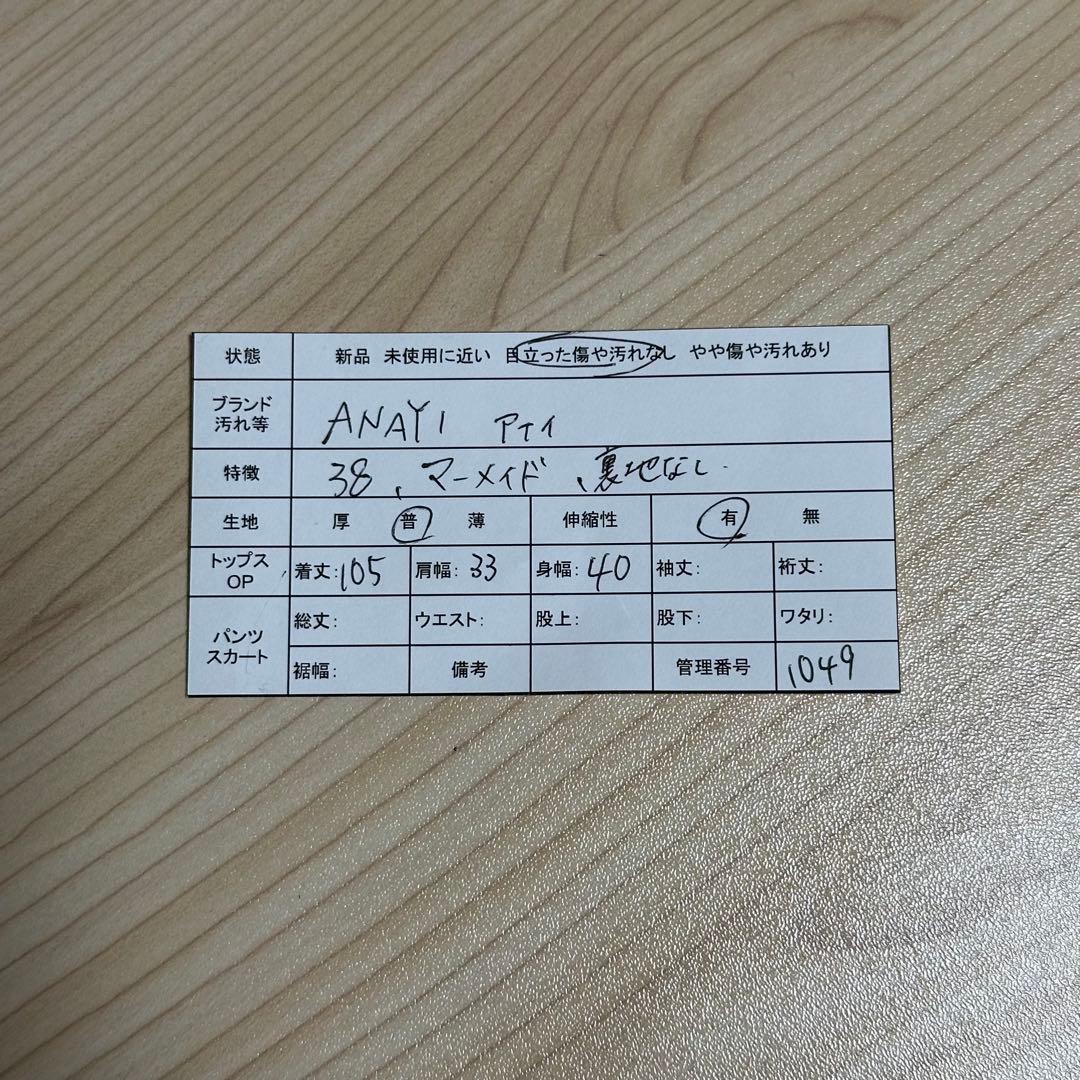 状態 新品 未使用に近い 目立った傷や汚れなし やや傷や汚れあり
ブランド
汚れ等
ANAYI アナイ
特徴 38、マーメイド、裏地なし.
生地 厚 普 薄 伸縮性 有 無
トップス
OP
着丈:105 肩幅:33 身幅:40 袖丈: 裄丈:
パンツ
スカート
総丈: ウエスト: 股上: 股下: ワタリ:
裾幅: 備考 管理番号 1049